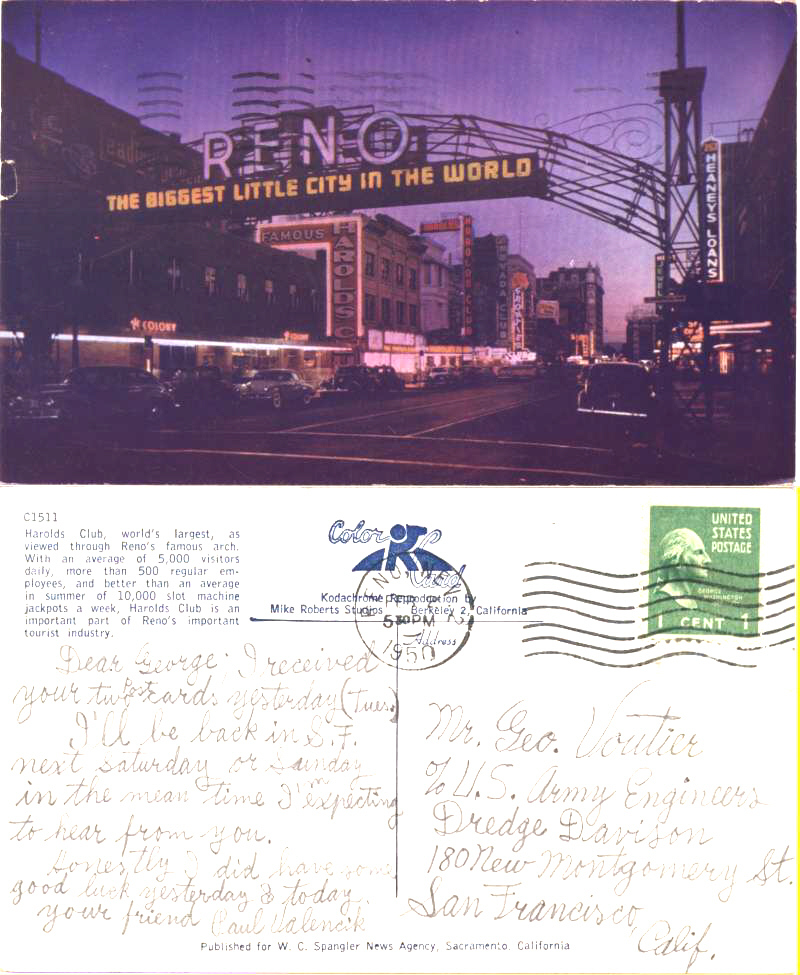 RENO
THE BIGGEST LITTLE CITY IN THE WORLD
FAMOUS
HAROLDS CLUB
HAROLDS CLUB
NEVADA CLUB
COLONY
JEWEL
HEANEYS LOANS
C1511
Harolds Club, world's largest, as
viewed through Reno's famous arch.
With an average of 5,000 visitors
daily, more than 500 regular em-
ployees, and better than an average
in summer of 10,000 slot machine
jackpots a week, Harolds Club is an
important part of Reno's important
tourist industry.
Color
Card
Kodachrome Reproduction by
Mike Roberts Studios Berkeley 2, California
Address
RENO, NEV.
530PM
1950
UNITED
STATES
POSTAGE
GEORGE
WASHINGTON
1 CENT 1
Dear George; I received
your two Post cards yesterday (Tues.)
I'll be back in S.F.
next saturday or Sunday
in the mean time I'm expecting
to hear from you.
Honestly I did have some
good luck yesterday & today.
your friend Paul Valencik
Mr. Geo. Voutier
% U.S. Army Engineers
Dredge Davison
180 New Montgomery St.
San Francisco,
Calif.
Published for W. C. Spangler News Agency, Sacramento, California